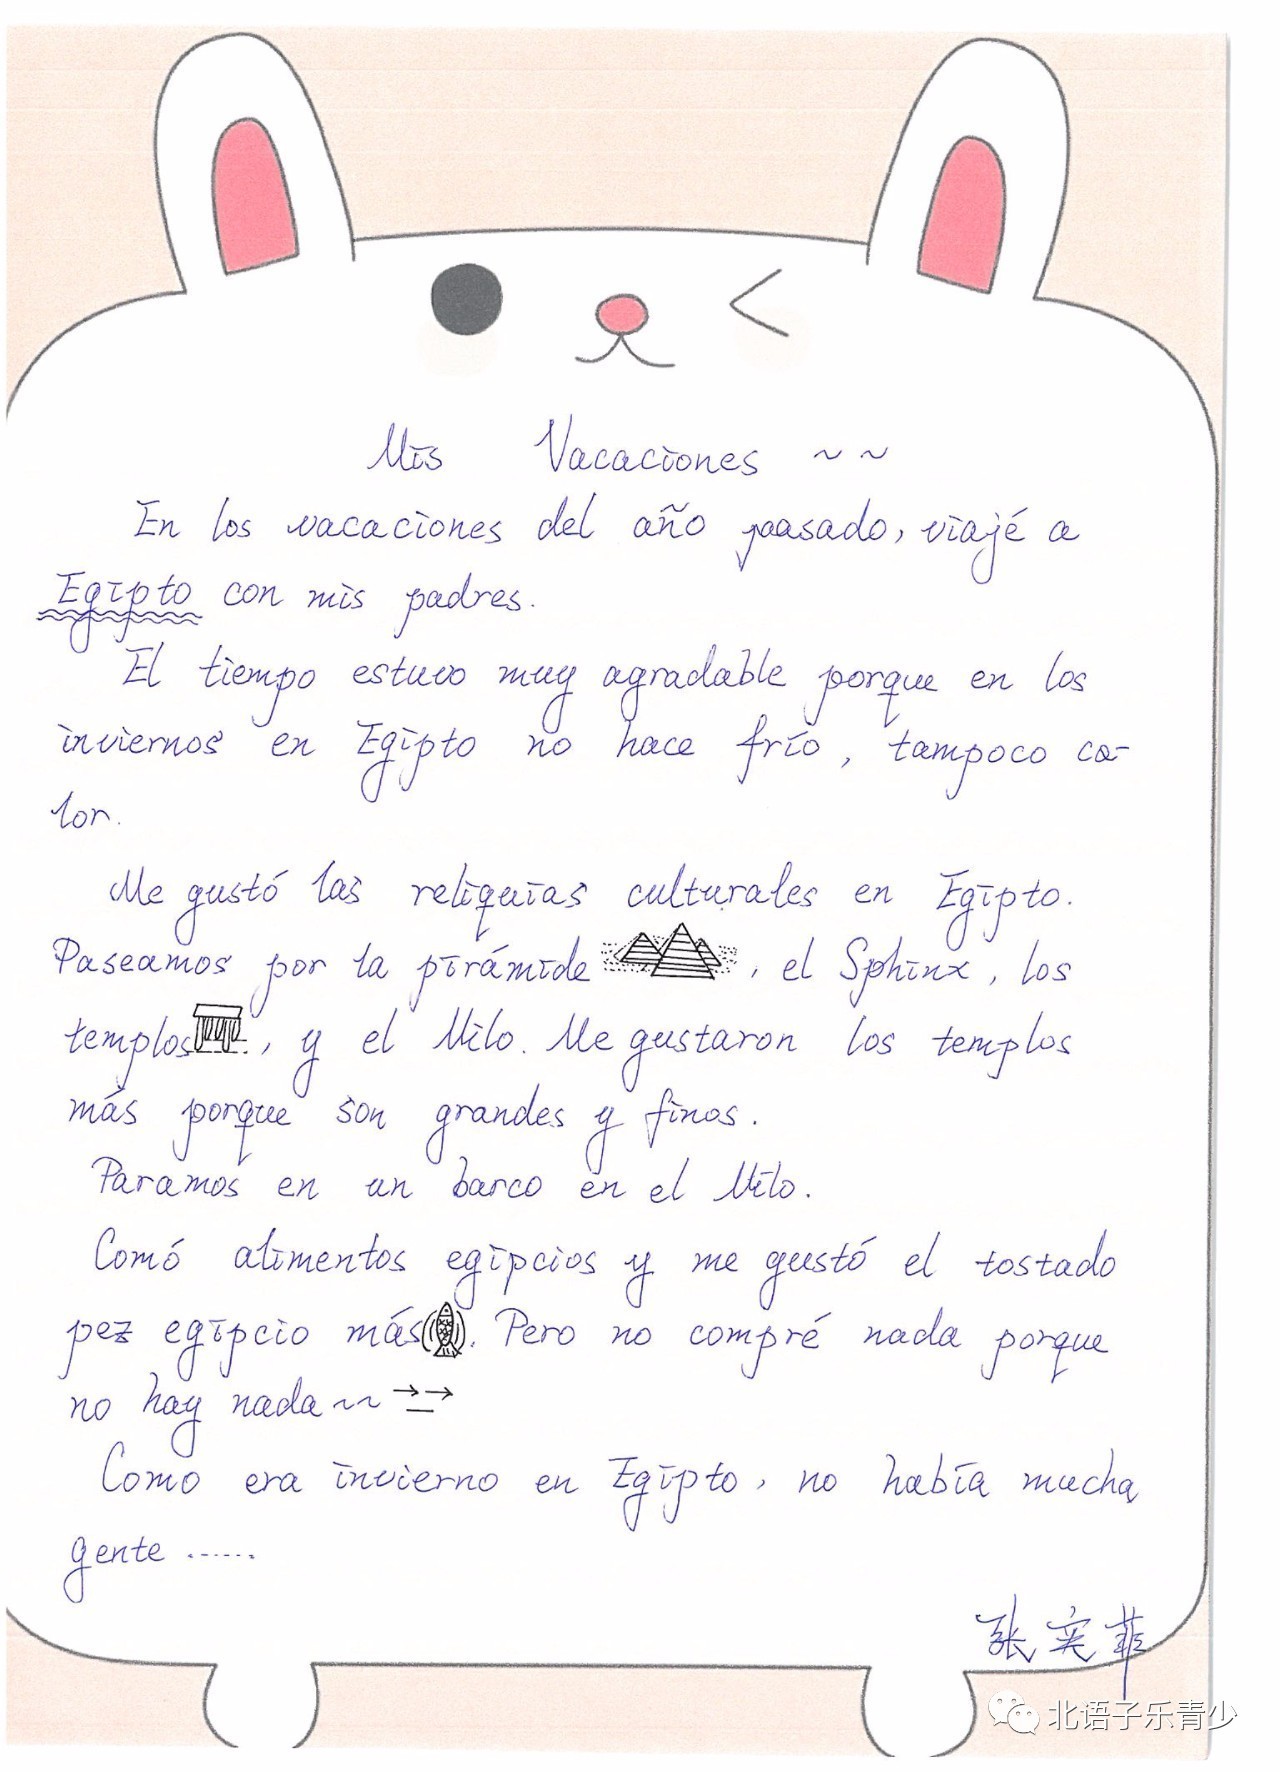 Mis Vacaciones ~~
En los vacaciones del año pasado, viajé a
Egipto con mis padres.
El tiempo estuvo muy agradable porque en los
inviernos en Egipto no hace frío, tampoco ca-
lor.
Me gustó las reliquias culturales en Egipto.
Paseamos por la pirámide, el Sphinx, los
templos, y el Nilo. Me gustaron los templos
más porque son grandes y finos.
Paramos en un barco en el Nilo.
Comó alimentos egipcios y me gustó el tostado
pez egipcio más. Pero no compré nada porque
no hay nada~~
Como era invierno en Egipto, no había mucha
gente ......
张奕菲
北语子乐青少